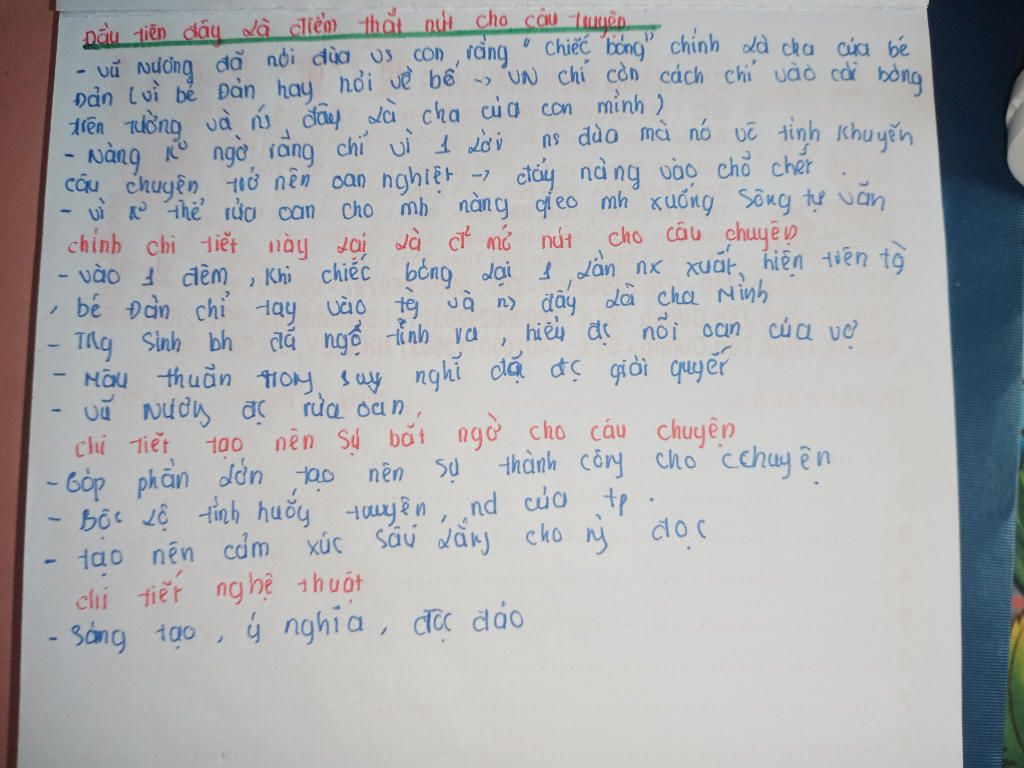 Đầu tiên đây là điểm thắt nút cho câu truyện
- Vũ Nương đã nói đùa vs con rằng "chiếc bóng" chính là cha của bé
Đản (vì bé Đản hay nói về bố -> VN chỉ còn cách chỉ vào cái bóng
trên tường và ns đây là cha của con mình)
- Nàng ko ngờ rằng chỉ vì 1 lời ns đùa mà nó vô tình khuyến
câu chuyện trở nên oan nghiệt -> đẩy nàng vào chỗ chết.
- vì ko thể rửa oan cho mh nàng gieo mh xuống sông tự vẫn
chính chi tiết này lại là đ² mở nút cho câu chuyện
- vào 1 đêm, khi chiếc bóng lại 1 lần nx xuất hiện trên tg
, bé Đản chỉ tay vào tg và ns đấy là cha Mình
- Trg Sinh bh đã ngộ tỉnh ra hiểu đc nỗi oan của vợ
- Mâu thuẫn trong suy nghĩ đã đc giải quyết
- Vũ Nương đc rửa oan
chi tiết tạo nên sự bất ngờ cho câu chuyện
- Góp phần lớn tạo nên sự thành công cho cchuyện
- Bộc lộ tình huống truyện, nd của tp.
- tạo nên cảm xúc sâu lắng cho ng đọc
chi tiết nghệ thuật
- Sáng tạo, ý nghĩa, độc đáo